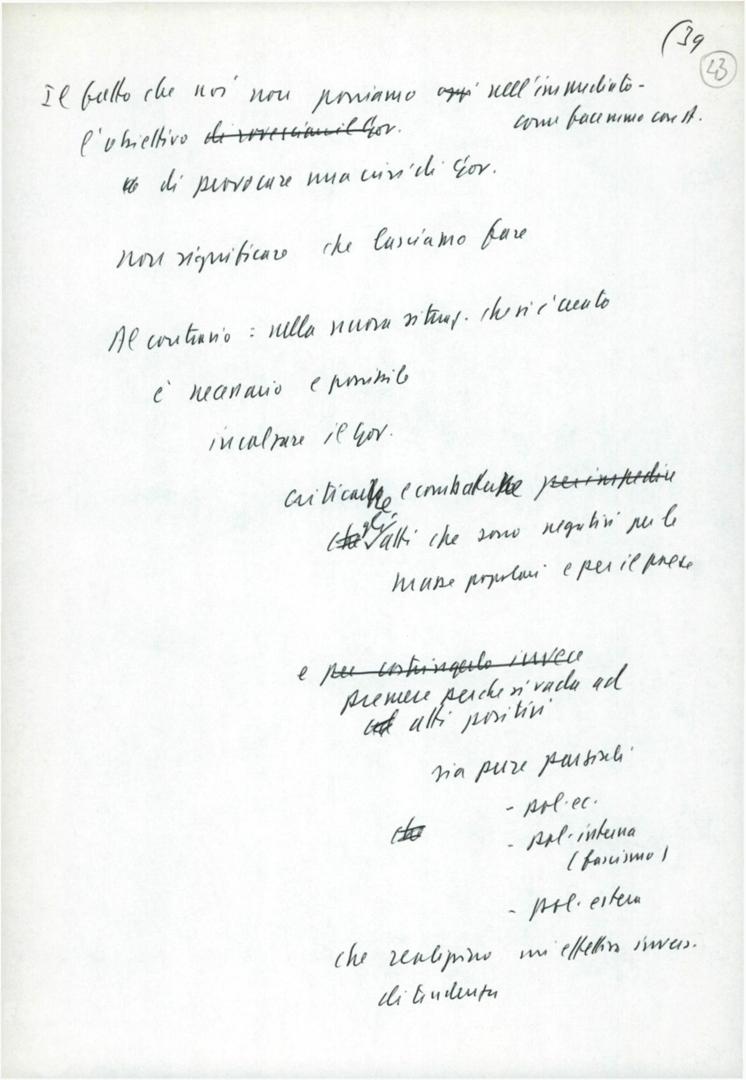 (39
43
Il fatto che noi non poniamo oggi nell'immediato -
come facemmo con A.
l'obiettivo di rovesciare il Gov.
di provocare una crisi di Gov.
non significare che lasciamo fare
Al contrario: nella nuova situaz. che si è creata
è necessario e possibile
incalzare il Gov.
criticarne e combatterne per impedire
che gli atti che sono negativi per le
masse popolari e per il paese
e per costringerlo invece
premere perché si vada ad
ad atti positivi
sia pure parziali
- pol. ec.
che
- pol. interna
(fascismo)
- pol. estera
che realizzino un'effettiva invers.
di tendenza